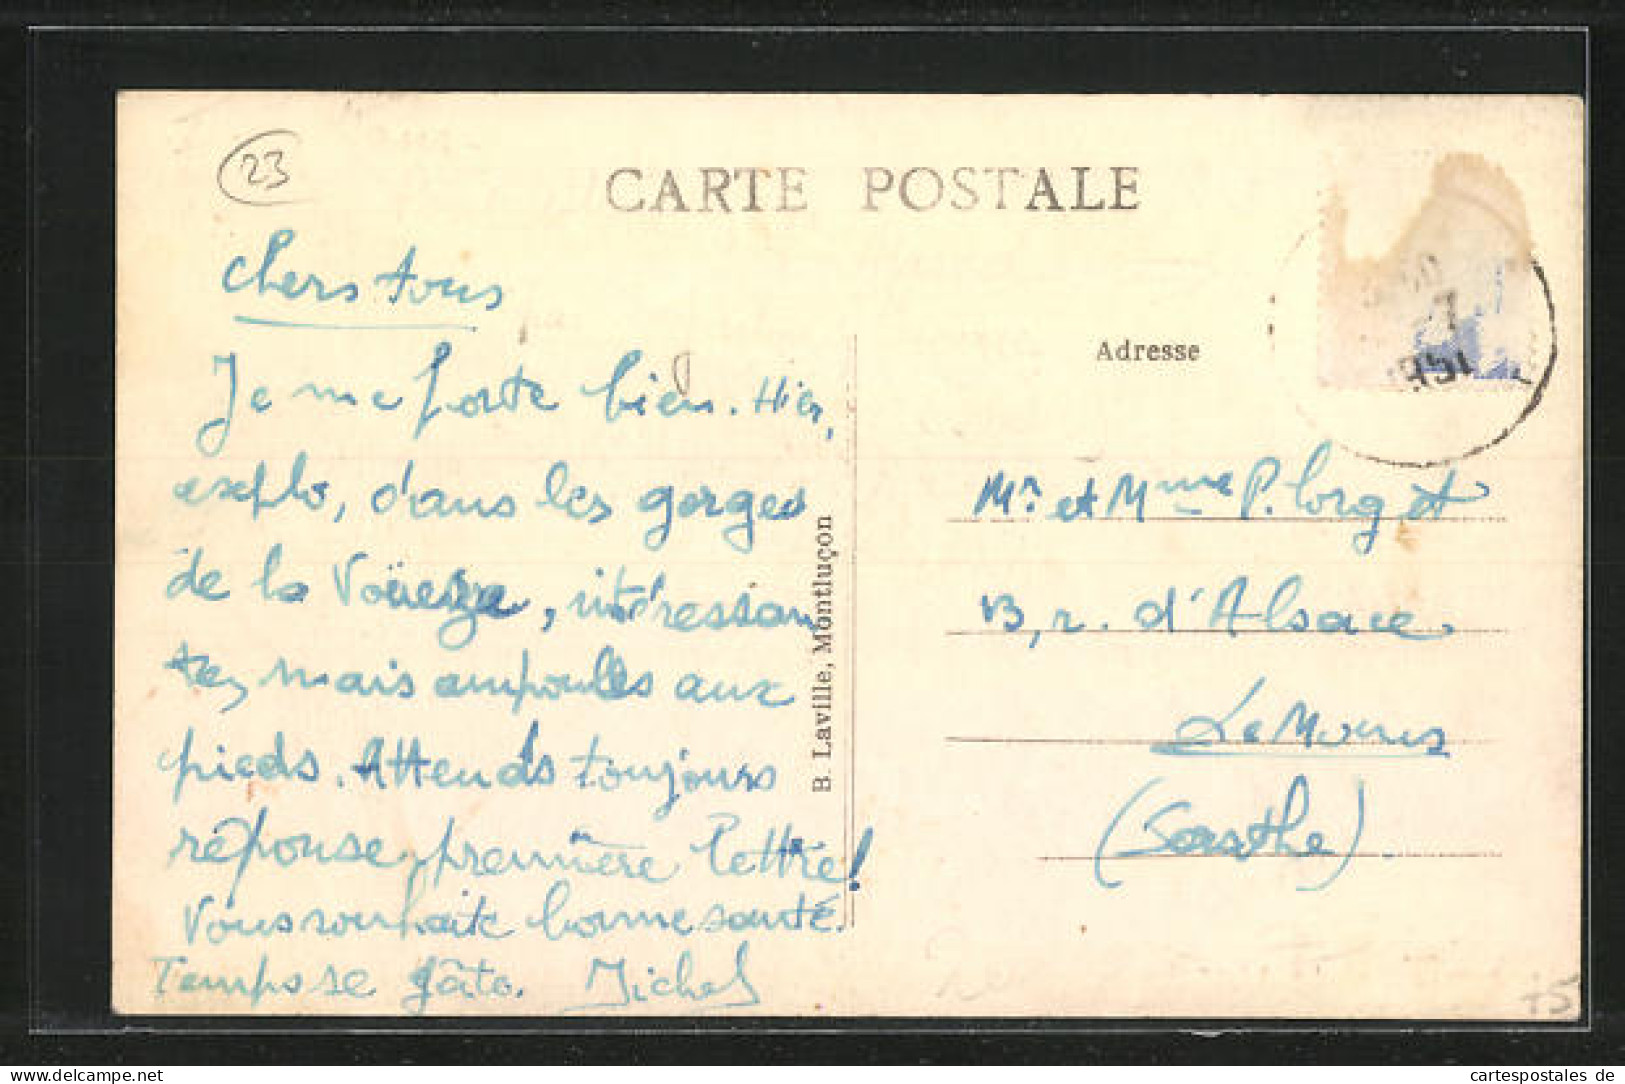 23
CARTE POSTALE
Chers tous
Je me porte bien. Hier,
explo, dans les gorges
de la Voüeize, intéressan
tes, mais ampoules aux
pieds. Attends toujours
réponse, première lettre!
Vous souhaite bonne santé.
Temps se gâte. Michel
B. Laville, Montluçon
Adresse
Mr et Mme P. Lorget
13, r. d'Alsace
Le Mans
(Sarthe).
951
+5
cartespostales de